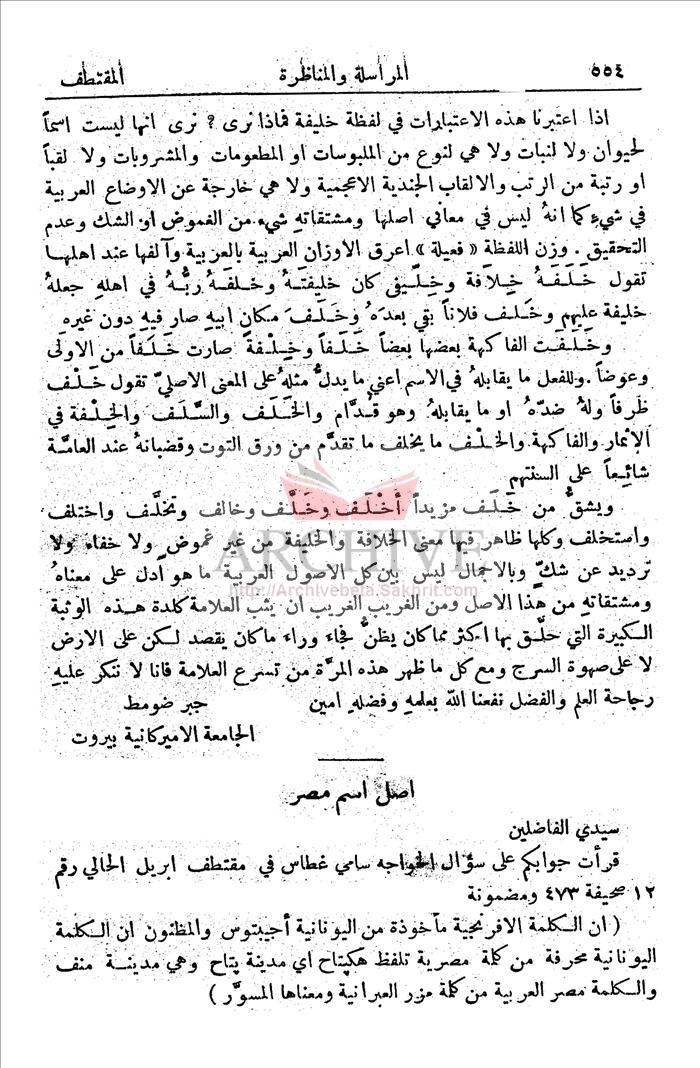 ٥٥٤ المراسلة والمناظرة المقتطف
اذا اعتبرنا هذه الاعتبارات في لفظة خليفة فماذا نرى ? نرى انها ليست اسماً
لحيوان ولا لنبات ولا هي لنوع من الملبوسات او المطعومات والمشروبات ولا لقباً
او رتبة من الرتب والالقاب الجندية الاعجمية ولا هي خارجة عن الاوضاع العربية
في شيءٍ كما انهُ ليس في معاني اصلها ومشتقاته شيء من الغموض او الشك وعدم
التحقيق . وزن اللفظة « فعيلة » اعرق الاوزان العربية بالعربية وآلفها عند اهلها
تقول خَلَفَهُ خِلافة وخِلّيفى كان خليفتهُ وخلفهُ ربُّهُ في اهله جعلهُ
خليفة عليهم وخَلَف فلاناً بقي بعدهُ وخَلَفَ مكان ابيهِ صار فيهِ دون غيره
وخَلَفَت الفاكهة بعضها بعضاً خَلَفاً وخِلفةً صارت خَلَفاً من الاولى
وعوضاً . وللفعل ما يقابلهُ في الاسم اعني ما يدلُّ مثلهُ على المعنى الاصليّ تقول خَلْف
ظرفاً ولهُ ضدّهُ او ما يقابلهُ وهو قُدَّام والخَلَف والسَّلَف والخِلْفة في
الإثمار والفاكهة. والخلْف ما يخلف ما تقدَّم من ورق التوت وقضبانهُ عند العامَّة
شائعاً على السنتهم
ويشقُّ من خَلَف مزيداً أَخْلَف وخَلَّف وخالف وتخلَّف واختلف
واستخلف وكلها ظاهر فيها معنى الخلافة والخليفة من غير غموض ولا خفاء ولا
ترديد عن شكٍّ وبالاجمال ليس بين كل الاصول العربية ما هو أدل على معناهُ
ومشتقاتهِ من هذا الاصل ومن الغريب الغريب ان يثب العلامة كلدة هذه الوثبة
الكبيرة التي حلَّق بها اكثر مما كان يظنُّ فجاء وراء ما كان يقصد لكن على الارض
لا على صهوة السرج ومع كل ما ظهر هذه المرَّة من تسرع العلامة فانا لا ننكر عليهِ
رجاحة العلم والفضل نفعنا الله بعلمهِ وفضلهِ امين جبر ضومط
الجامعة الاميركانية بيروت
اصل اسم مصر
سيدي الفاضلين
قرأت جوابكم على سؤال الخواجه سامي غطاس في مقتطف ابريل الحالي رقم
١٢ صحيفة ٤٧٣ ومضمونة
( ان الكلمة الافرنجية مأخوذة من اليونانية أجيبتوس والمظنون ان الكلمة
اليونانية محرفة من كلمة مصرية تلفظ هكپتاح اي مدينة پتاح وهي مدينة منف
والكلمة مصر العربية من كلمة مزر العبرانية ومعناها المسوَّر )
ARCHIVE
http://Archivebeta.Sakhrit.com